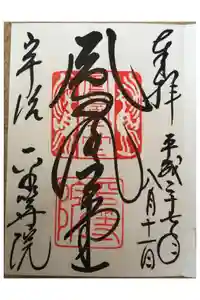 奉拝
平成二十七年
八月十一日
鳳凰堂
宇治
平等院